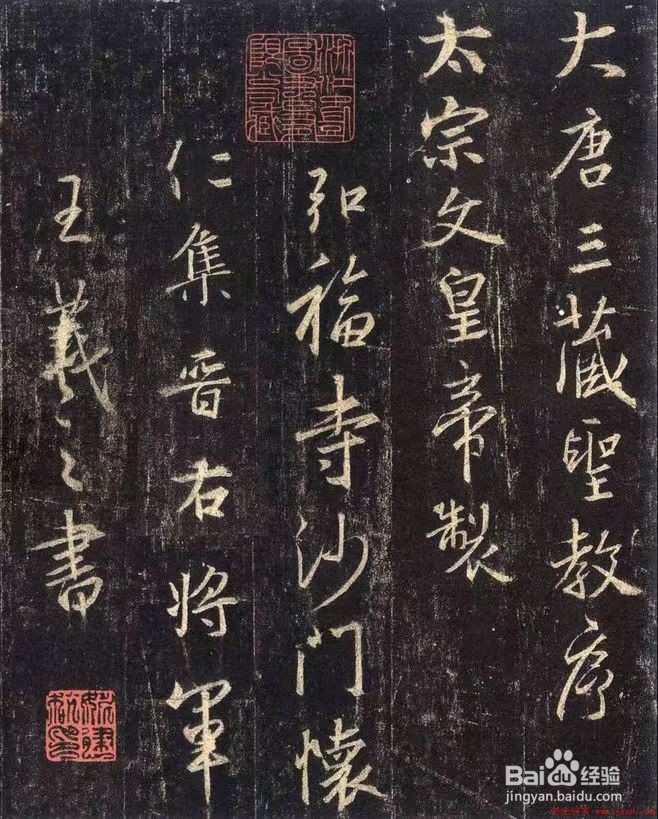 大唐三藏聖教序
太宗文皇帝製
弘福寺沙門懷
仁集晋右将軍
王羲之書
Bai 经验
jingyan.baidu.com